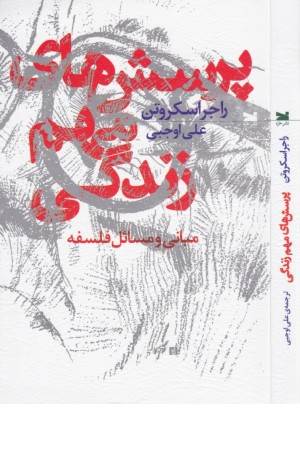 پرسش‌های
مهم
زندگی
راجر اسکروتن
علی اوجبی
مبانی و مسائل فلسفه
راجر اسکروتن
پرسش‌های مهم زندگی
ترجمه‌ی علی اوجبی